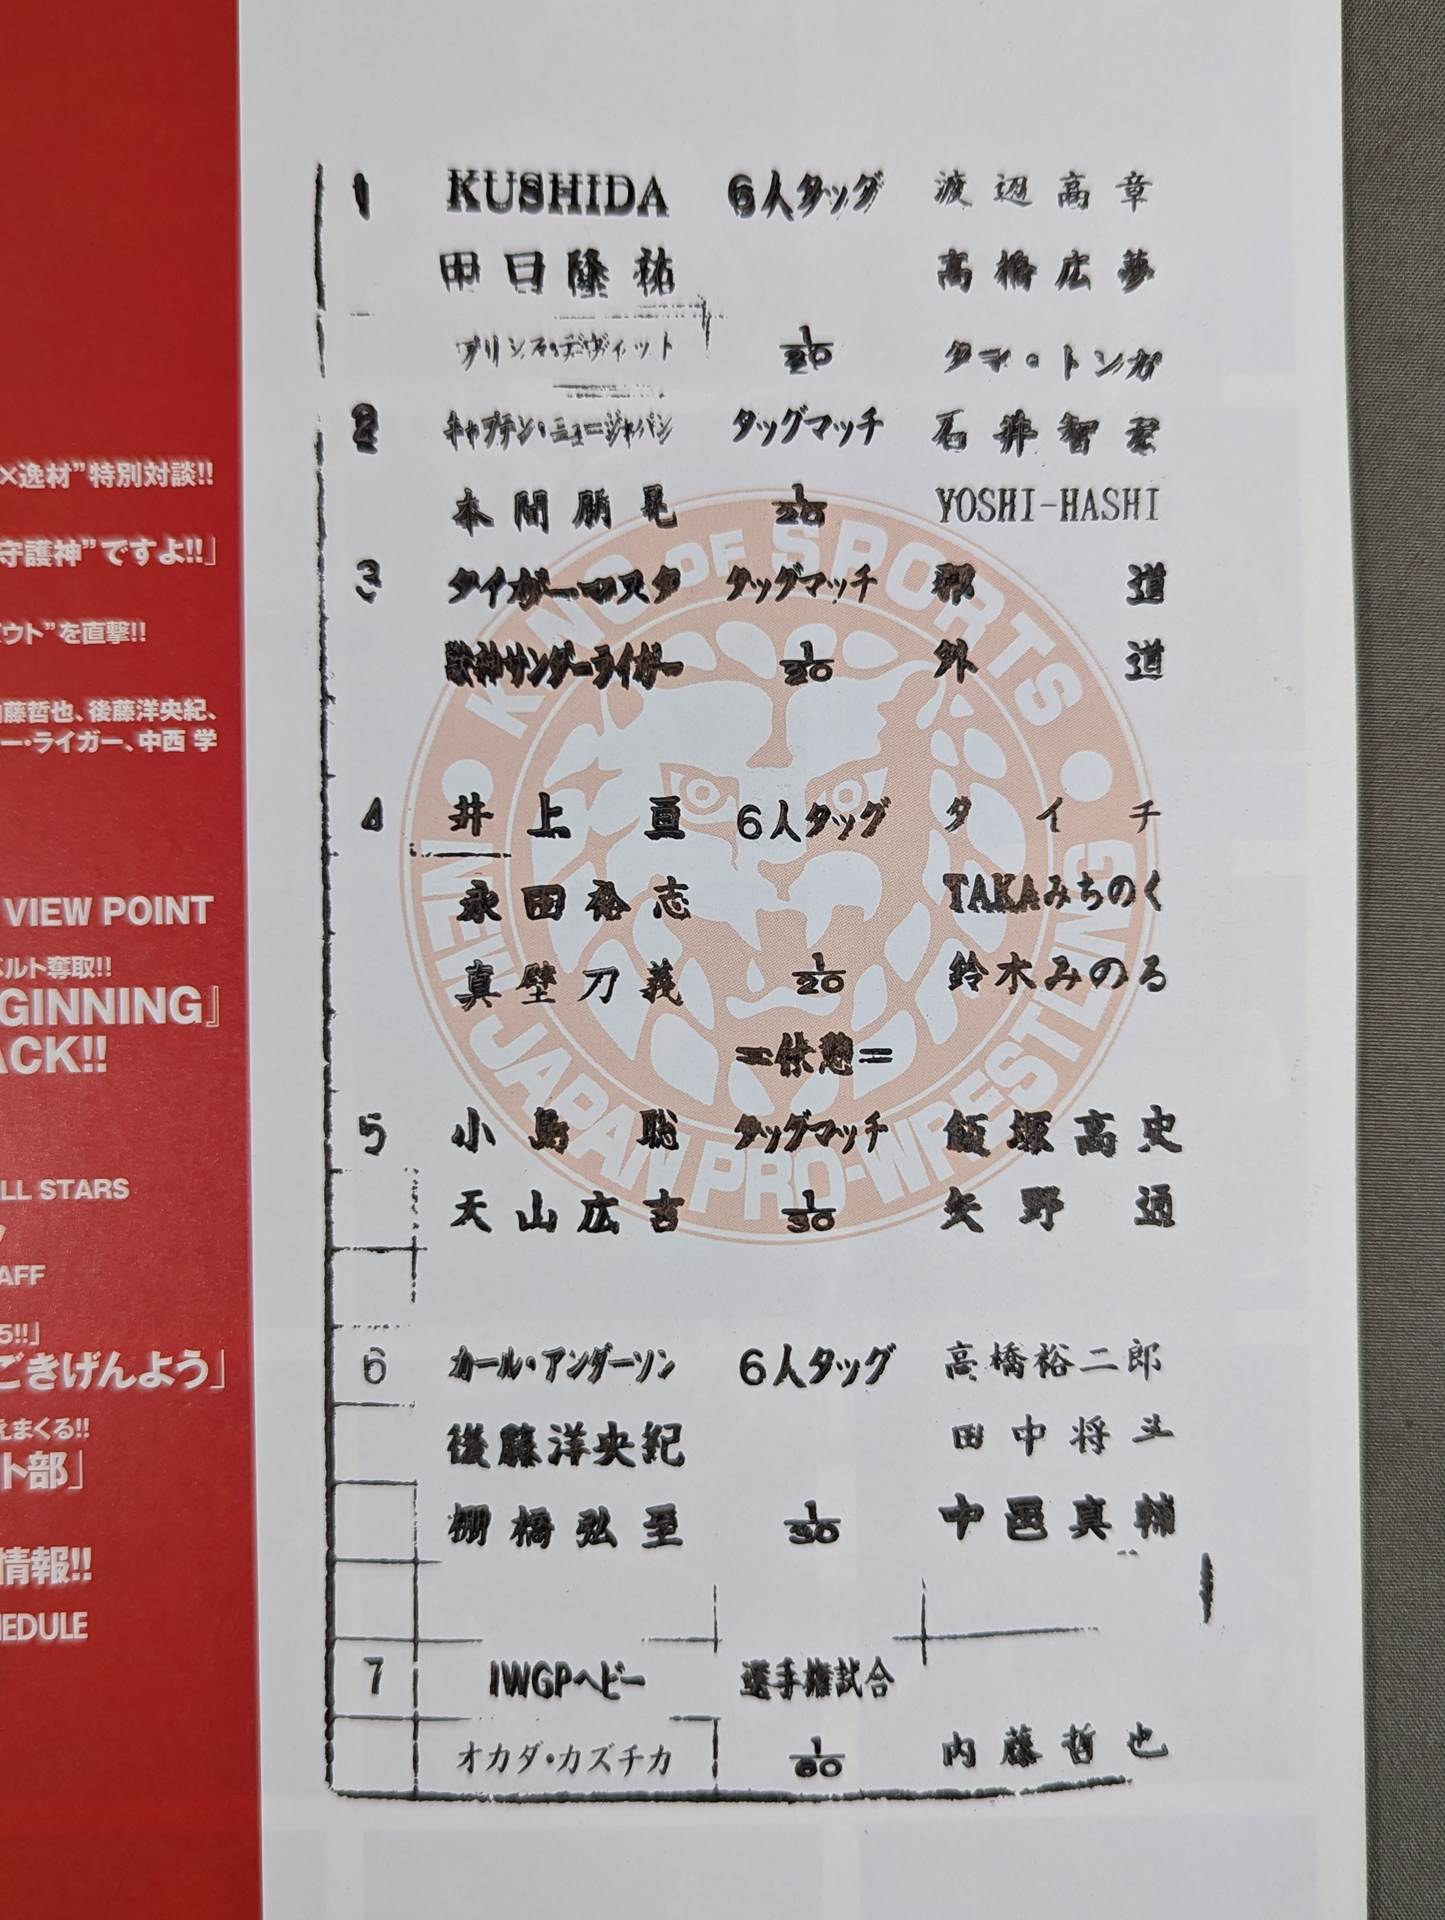 ×逸材”特別対談!!
守護神”ですよ!!」
ウト”を直撃!!
藤哲也、後藤洋央紀、
ー・ライガー、中西 学
VIEW POINT
ベルト奪取!!
GINNING』
ACK!!
LL STARS
AFF
5!!」
ごきげんよう」
えまくる!!
ト部」
情報!!
HEDULE
1 KUSHIDA 6人タッグ 渡辺高章
田口隆祐 高橋広夢
プリンス・デヴィット 1/20 タマ・トンガ
2 キャプテン・ニュージャパン タッグマッチ 石井智宏
本間朋晃 1/20 YOSHI-HASHI
3 タイガーマスク タッグマッチ 邪道
獣神サンダーライガー 1/20 外道
4 井上亘 6人タッグ タイチ
永田裕志 TAKAみちのく
真壁刀義 1/20 鈴木みのる
=休憩=
5 小島聡 タッグマッチ 飯塚高史
天山広吉 1/30 矢野通
6 カール・アンダーソン 6人タッグ 高橋裕二郎
後藤洋央紀 田中将斗
棚橋弘至 1/30 中邑真輔
7 IWGPヘビー 選手権試合
オカダ・カズチカ 1/60 内藤哲也
KING OF SPORTS
NEW JAPAN PRO-WRESTLING